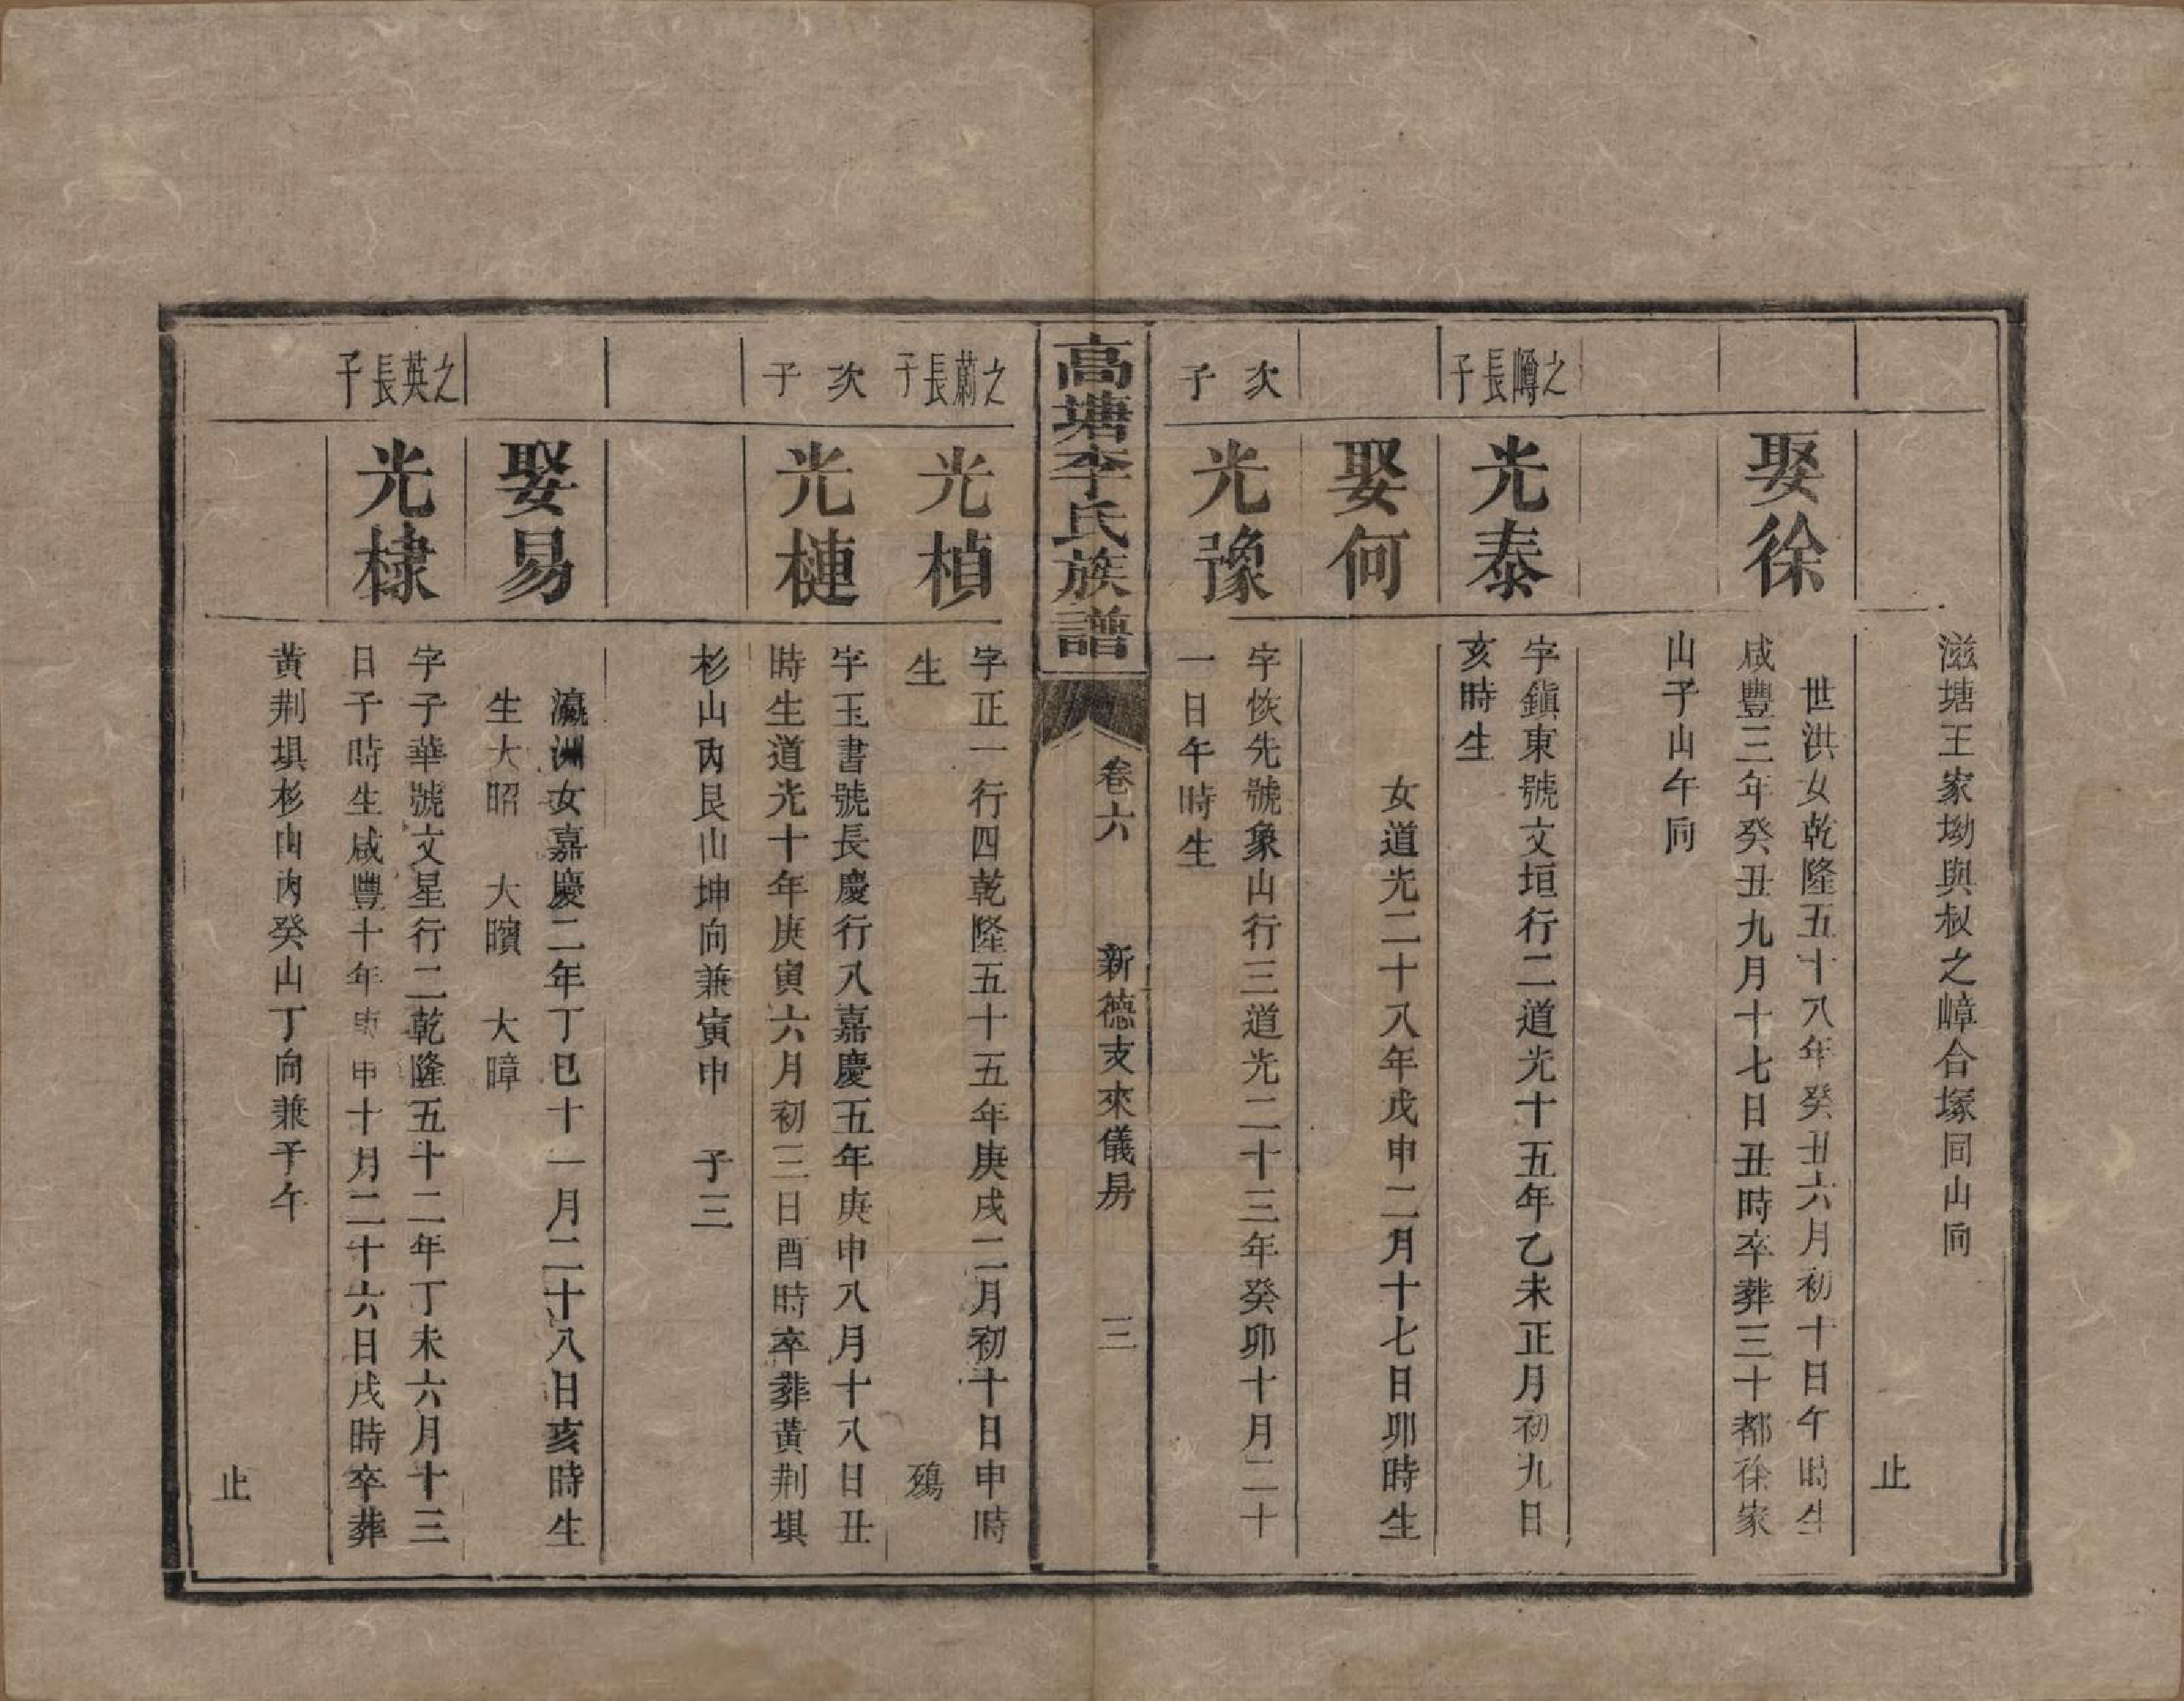 滋塘王家坳與叔之嶂合塚同山同
止
娶徐
世洪女乾隆五十八年癸丑六月初十日午時生
咸豐三年癸丑九月十七日丑時卒葬三十都徐家
山子山午向
之嶟長子
光泰
字鎮東號文垣行二道光十五年乙未正月初九日
亥時生
娶何
女道光二十八年戊申二月十七日卯時生
次子
光豫
字恢先號象山行三道光二十三年癸卯十月二十
一日午時生
高塘李氏族譜
卷六
新德支來儀房
三
之蘭長子
光楨
字正一行四乾隆五十五年庚戌二月初十日申時
生
殤
次子
光槤
字玉書號長慶行八嘉慶五年庚申八月十八日丑
時生道光十年庚寅六月初三日酉時卒葬黃荆塤
杉山內艮山坤向兼寅申 子三
娶易
瀛洲女嘉慶二年丁巳十一月二十八日亥時生
生大昭 大矌 大暲
之英長子
光棣
字子華號文星行二乾隆五十二年丁未六月十三
日子時生咸豐十年庚申十月二十六日戌時卒葬
黃荆塤杉山內癸山丁向兼子午
止